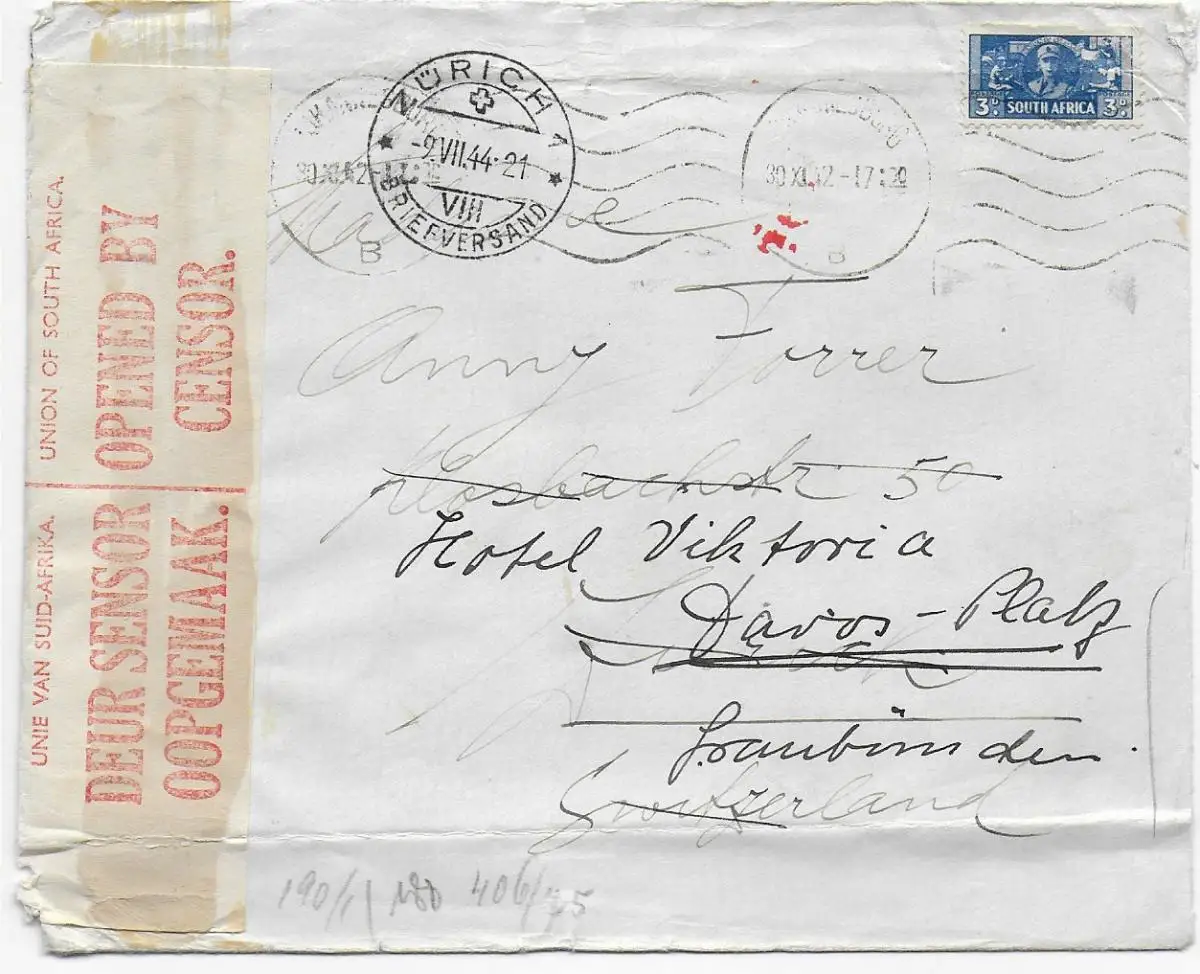 UNIE VAN SUID-AFRIKA. UNION OF SOUTH AFRICA.
DEUR SENSOR OPENED BY
OOPGEMAAK. CENSOR.
ZÜRICH 1
-9.VII.44-21
VIII
BRIEFVERSAND
30 XI 42 -17:30
B
30 XI 42 -17:30
B
3D. SOUTH AFRICA 3D.
Anny Forrer
Klosbachstr 50
Hotel Viktoria
Davos-Platz
Zürich
Graubünden.
Switzerland
190/1 406/45